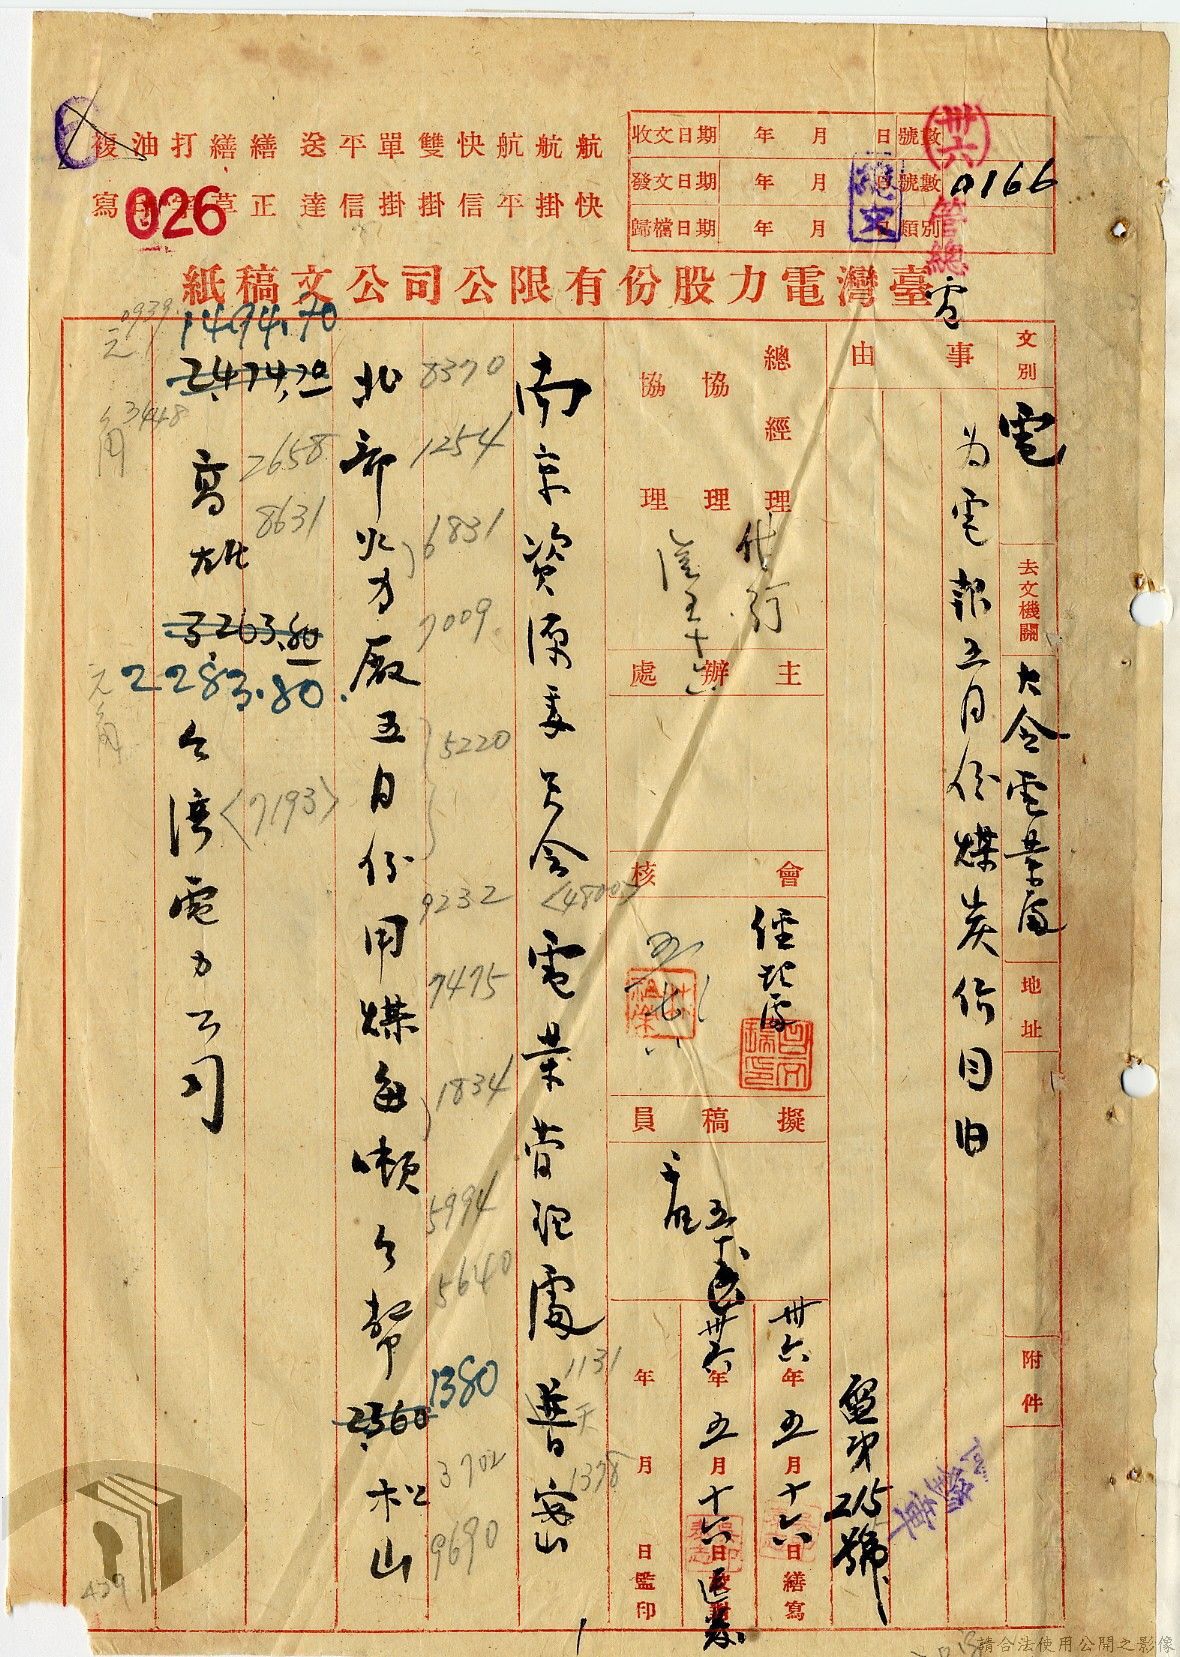 複寫 油印 打字 繕草 繕正 送達 平信 單掛 雙掛 快信 航平 航掛 航快
026
收文日期 年 月 日 號數
發文日期 年 月 號數 0166
歸檔日期 年 月 類別
卅六
管總
電
發文
臺灣電力股份有限公司公文稿紙
文別 電
去文機關 大会電業處
地址
附件
事由
为電報五月份煤炭价目由
電業215號
總經理
協理
協理
代行
主辦處
會核
經理處
擬稿員
卅六年五月十六日繕寫
卅六年五月十六日校對
年 月 日監印
南京資源委員会電業管理處普密
<4800>
1131
天
1378
8370
1254
6831
7009
5220
9232
7475
1834
5994
5640
1380
3702
9690
北部火力厰五月份用煤每噸台幣2,560松山
2658
8631
<7193>
1494.70
2,474.70高雄3,263.80台湾電力公司
2283.80.
0939
元
3448
角
元
角
429
請合法使用公開之影像